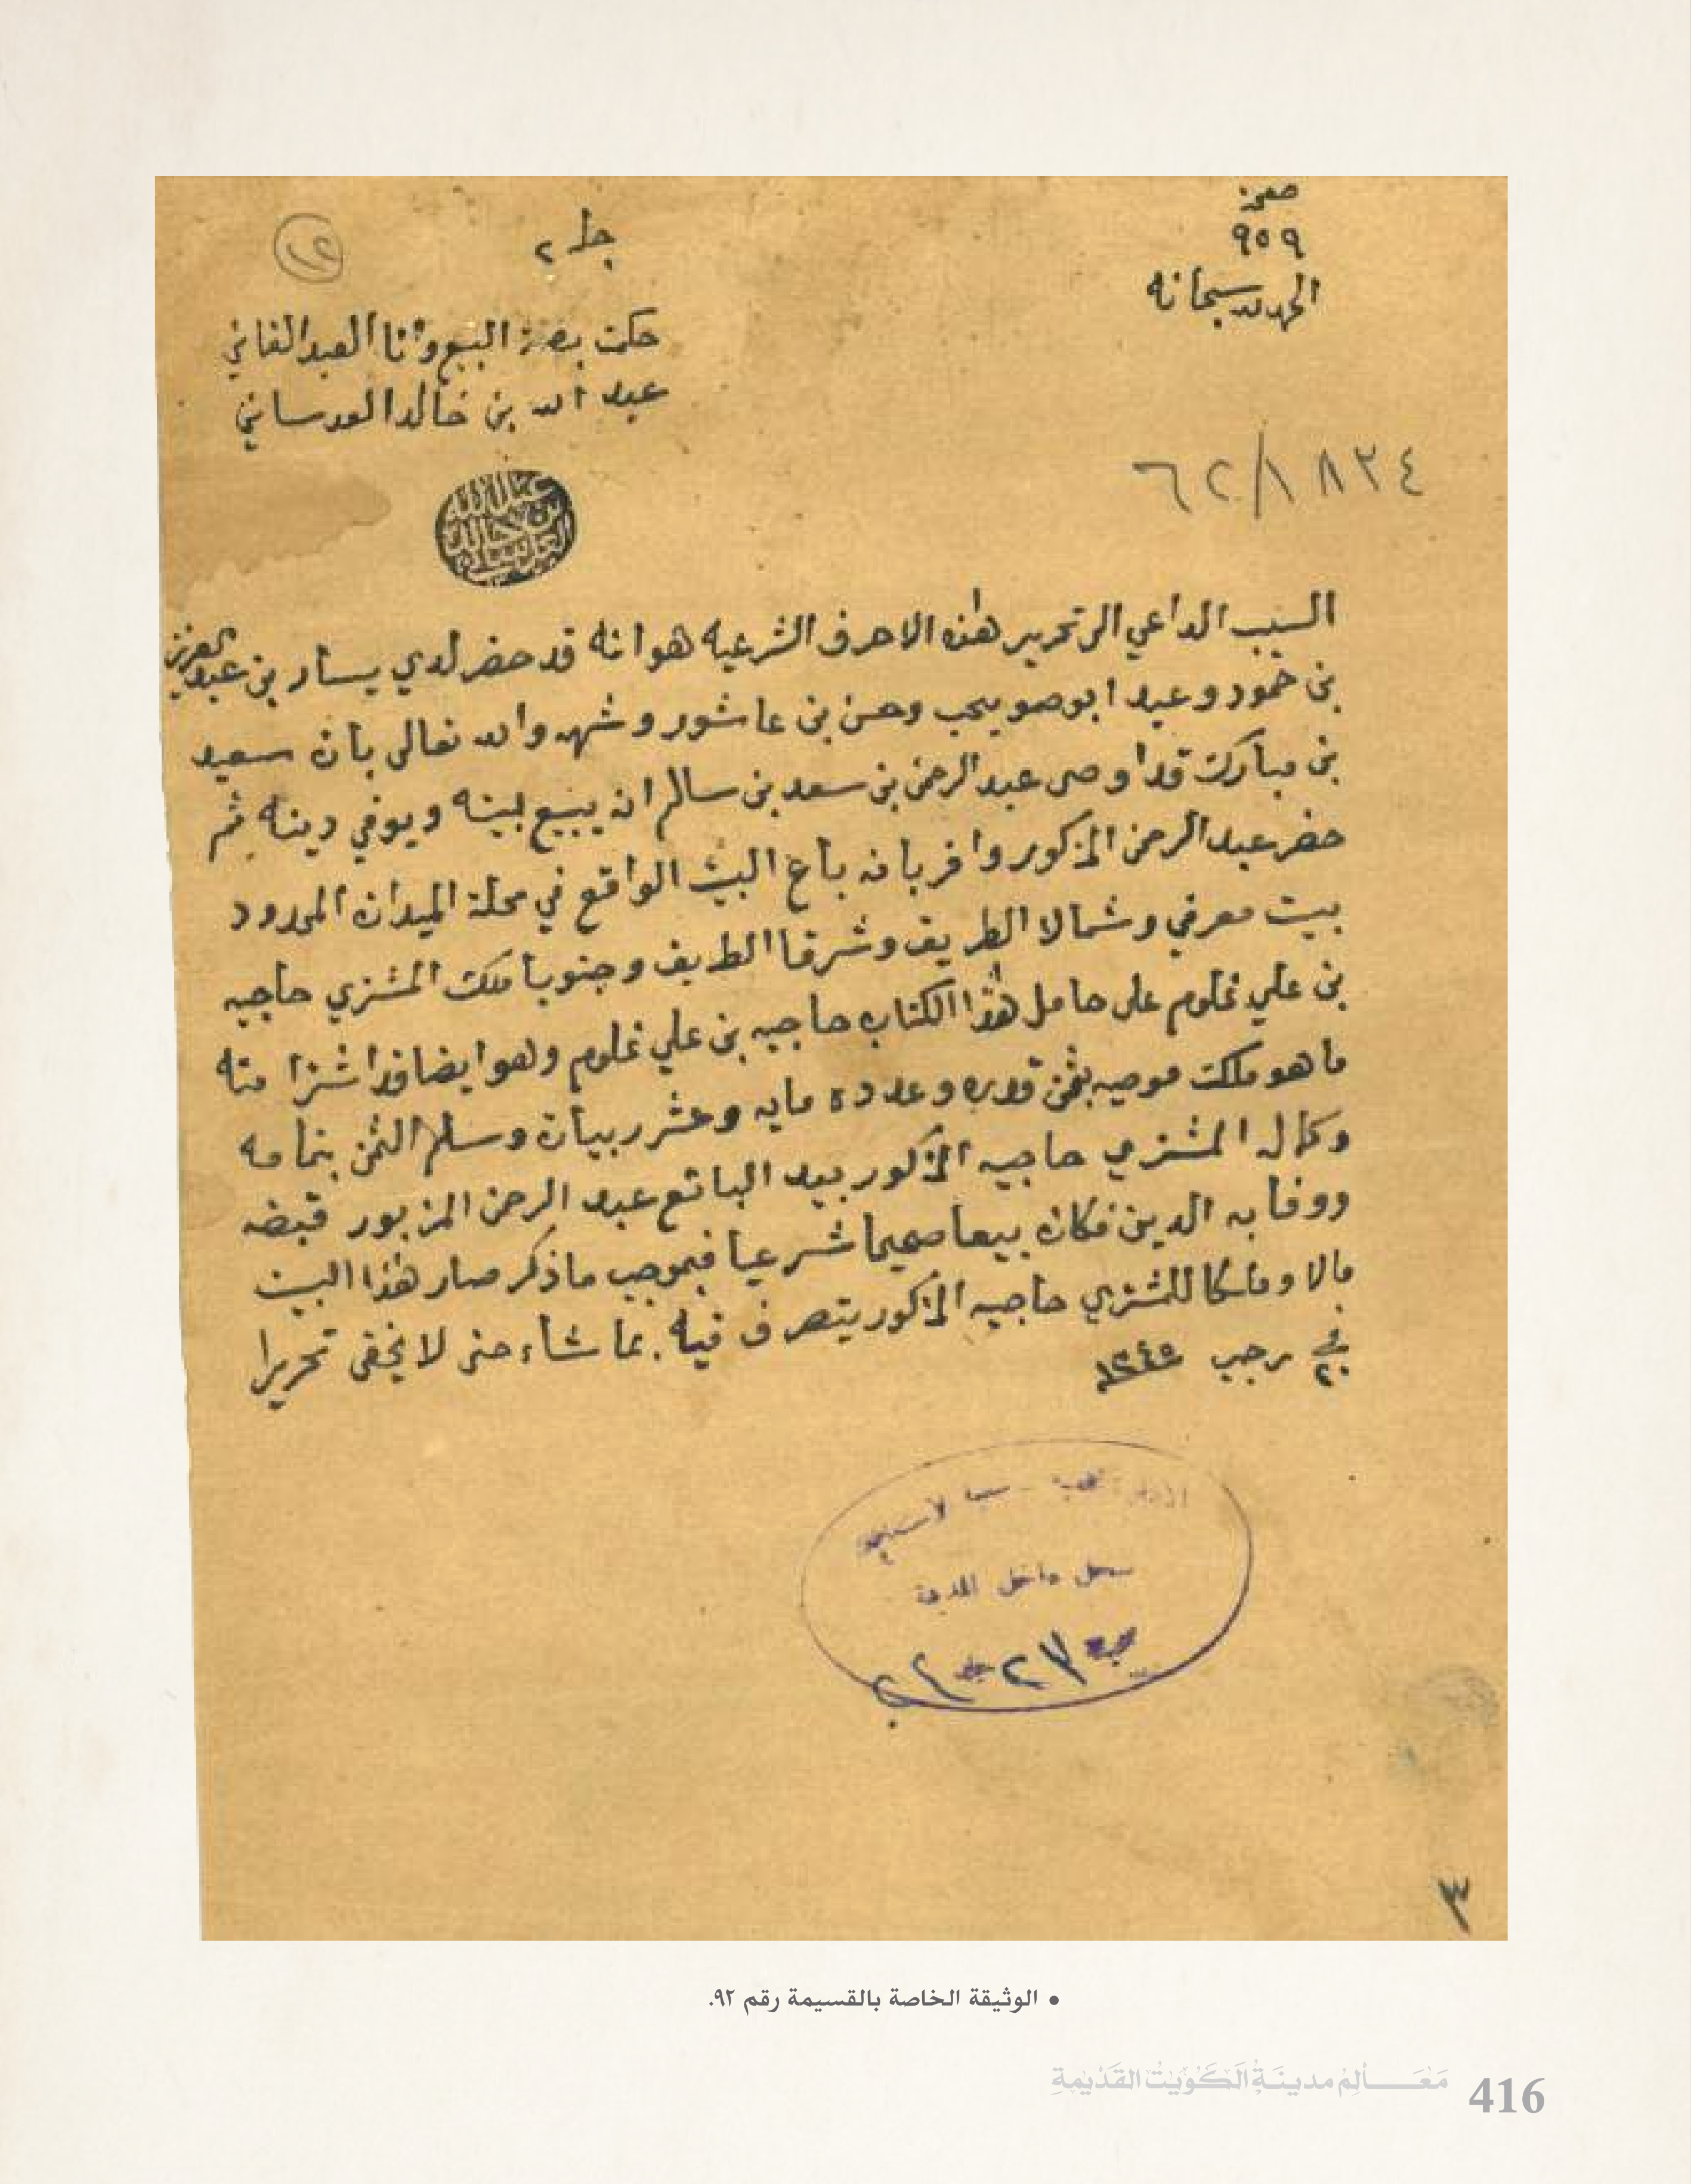 صحيفة
٩٥٩
جلد ٢
١٢
الحمد لله سبحانه
حكمت بصحة البيع وأنا العبد الفاني
عبد الله بن خالد العدساني
٦٢/١٨٣٤
السبب الداعي الى تحرير هذه الاحرف الشرعيه هو انه قد حضر لدي يسار بن عبد العزيز
بن حمود وعيد ابو صويحب وحسن بن عاشور وشهدوا لله تعالى بان سعيد
بن مبارك قد اوصى عبد الرحمن بن سعد بن سالم ان يبيع بيته ويوفي دينه ثم
حضر عبد الرحمن المذكور واقر بانه باع البيت الواقع في محلة الميدان المحدود
بيت معرفي وشمالا الطريق وشرقا الطريق وجنوبا ملك المشتري حاجيه
بن علي غلوم على حامل هذا الكتاب حاجيه بن علي غلوم وهو ايضا قد اشترا منه
ما هو ملك موصيه بثمن قدره وعدده مايه وعشر ربيات وسلم الثمن بتمامه
وكماله المشتري حاجيه المذكور بيد البائع عبد الرحمن المزبور قبضه
ووفا به الدين فكان بيعا صحيحا شرعيا فبموجب ما ذكر صار هذا البيت
مالا وملكا للمشتري حاجيه المذكور يتصرف فيه بما شاء حتى لا يخفى تحريرا
في ٢٠ رجب ١٣٤٥
سجل داخل المدينة
٣
• الوثيقة الخاصة بالقسيمة رقم ٩٢.
مَعَـــالِمُ مدينَـةِ الكُوَيْتْ القَدْيمَةِ 416